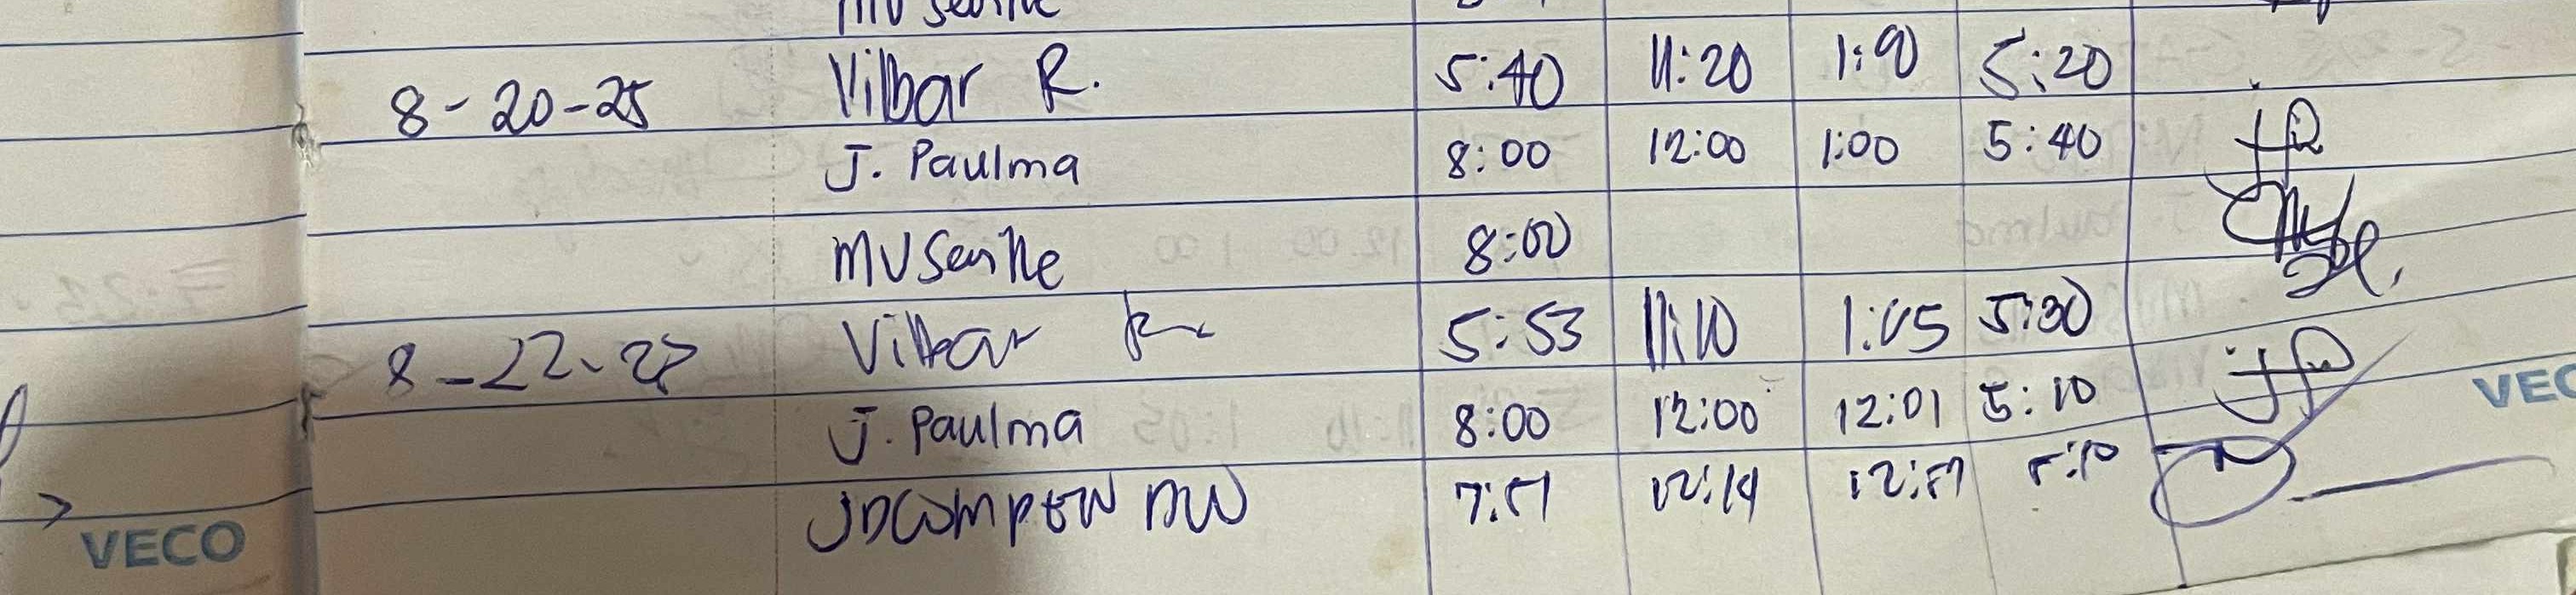 MV Seville
8-20-25 Vilbar R. 5:40 11:20 1:00 5:20
J. Paulma 8:00 12:00 1:00 5:40
MV Seville 8:00
8-22-25 Vilbar R. 5:53 11:10 1:05 5:30
J. Paulma 8:00 12:00 12:01 5:10
7:51 12:14 12:51 5:10
VECO